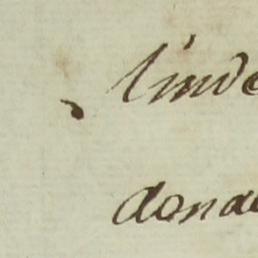 linde
donde